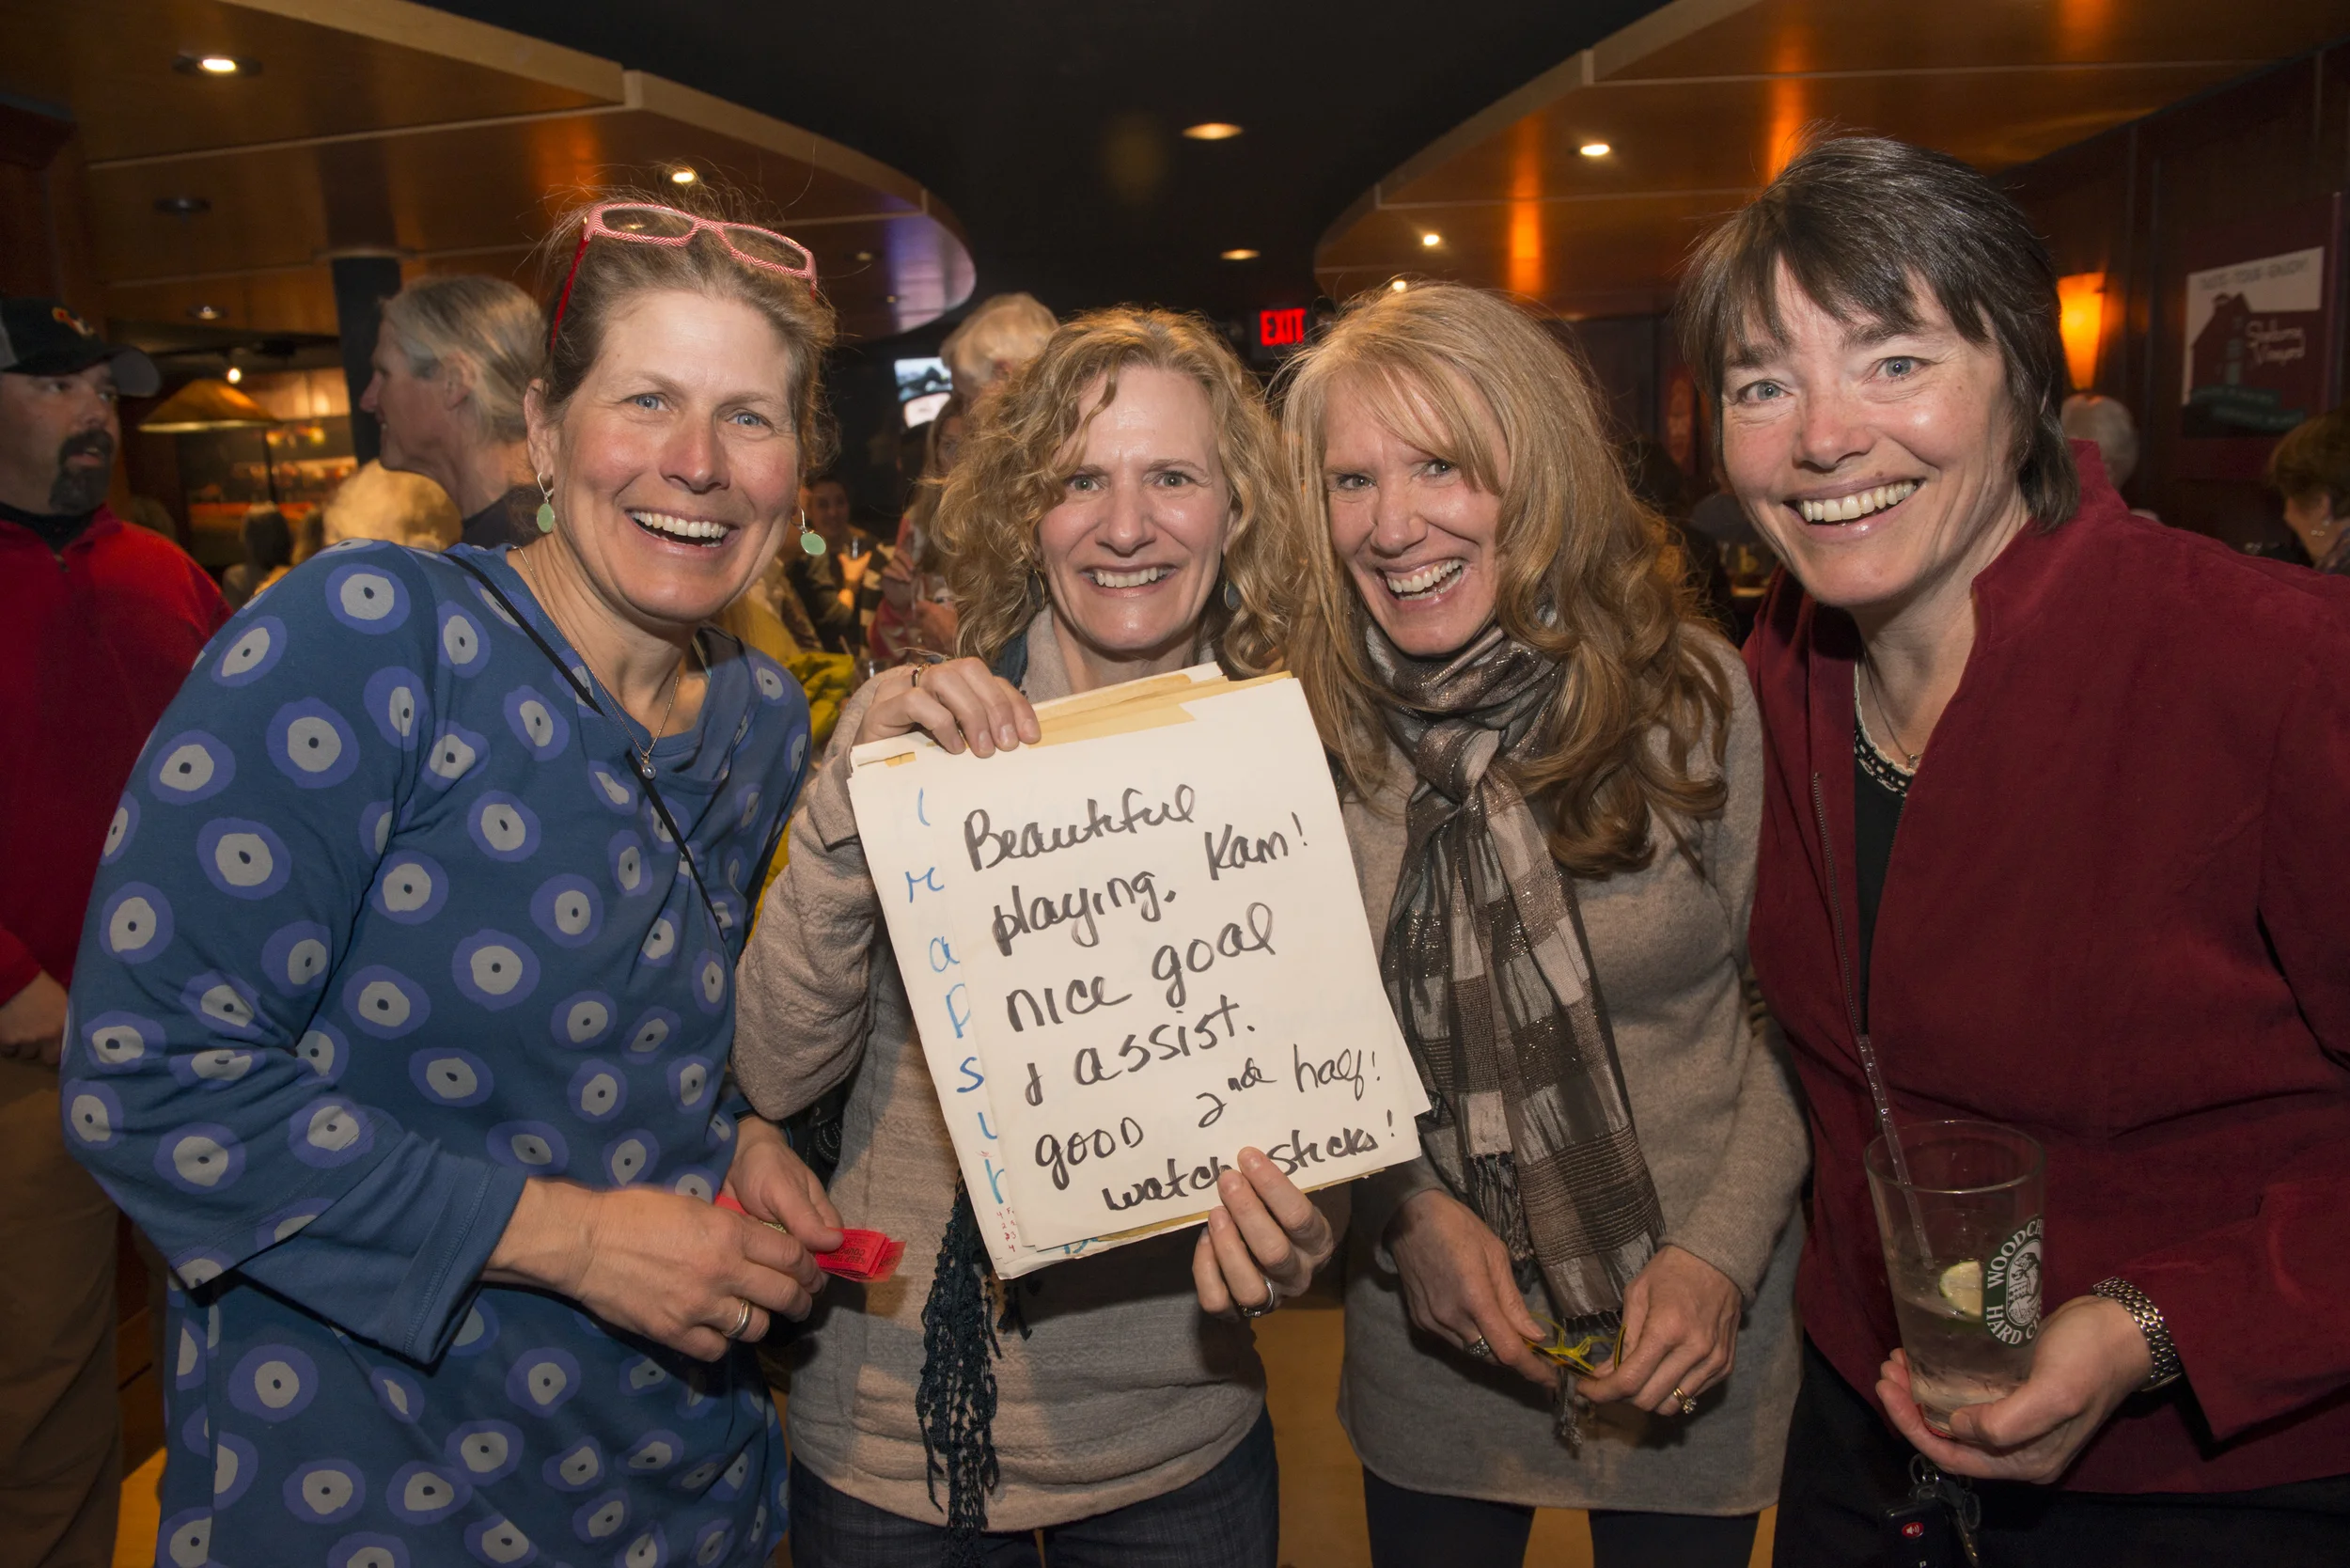 EXIT
Beautiful
playing. Kam!
nice goal
& assist.
good 2nd half!
watch sticks!
WOODC
HARD C